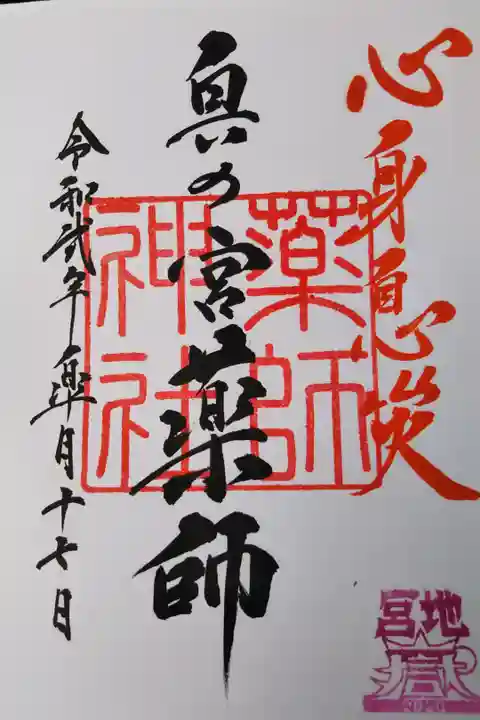 心身息災
奥の宮薬師
薬師
神社
令和弐年皐月十七日
宮地
嶽
2020